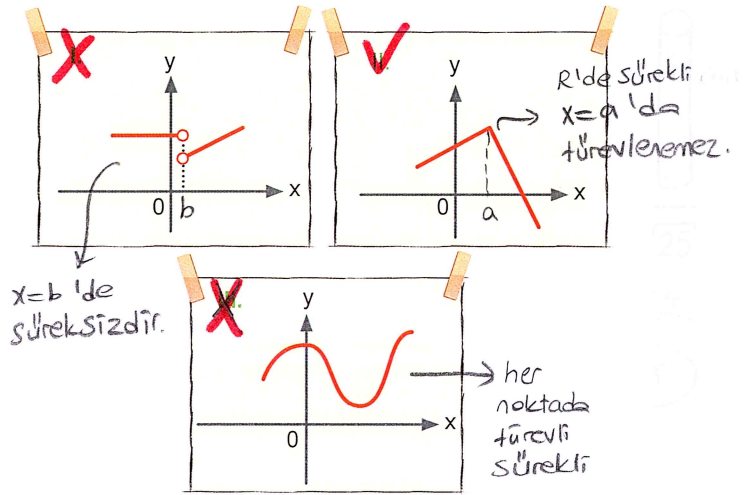 y
x
0
b
x=b 'de
süreksizdir.
II.
y
x
0
a
R'de sürekli
x=a 'da
türevlenemez.
y
x
0
her
noktada
türevli
sürekli